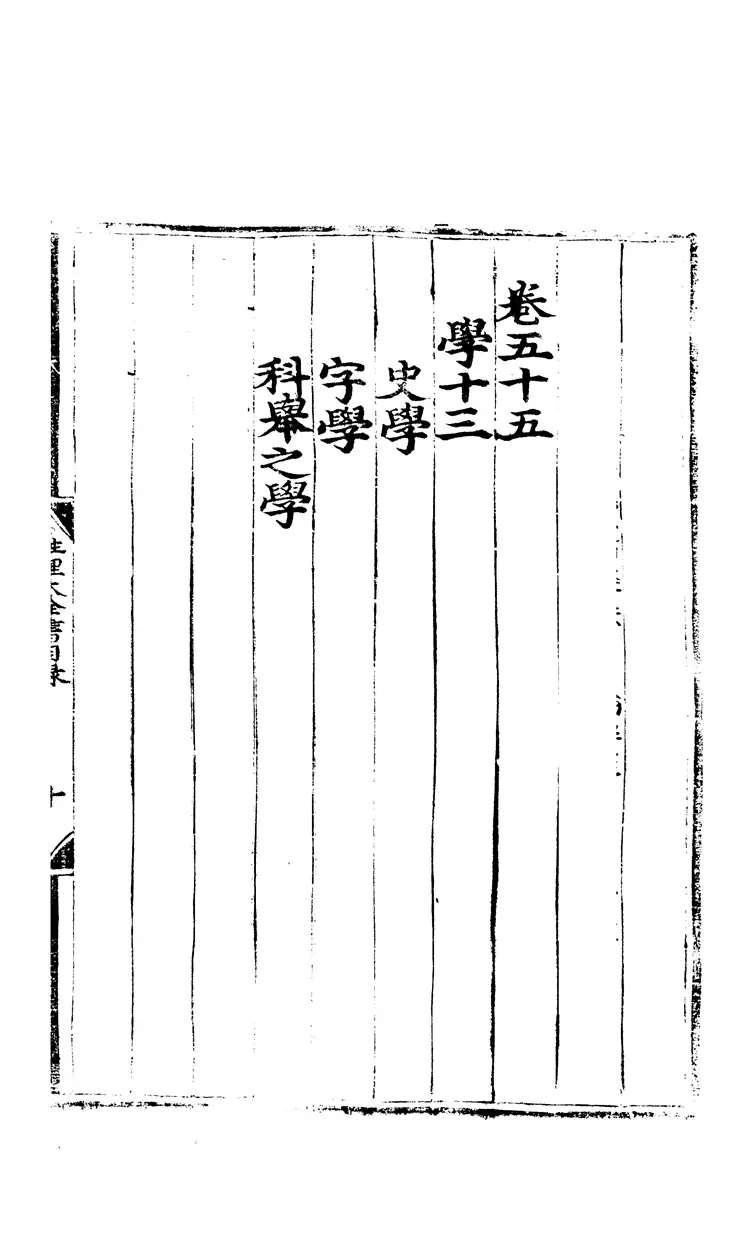 卷五十五
學十三
史學
字學
科舉之學
性理大全書目錄
十